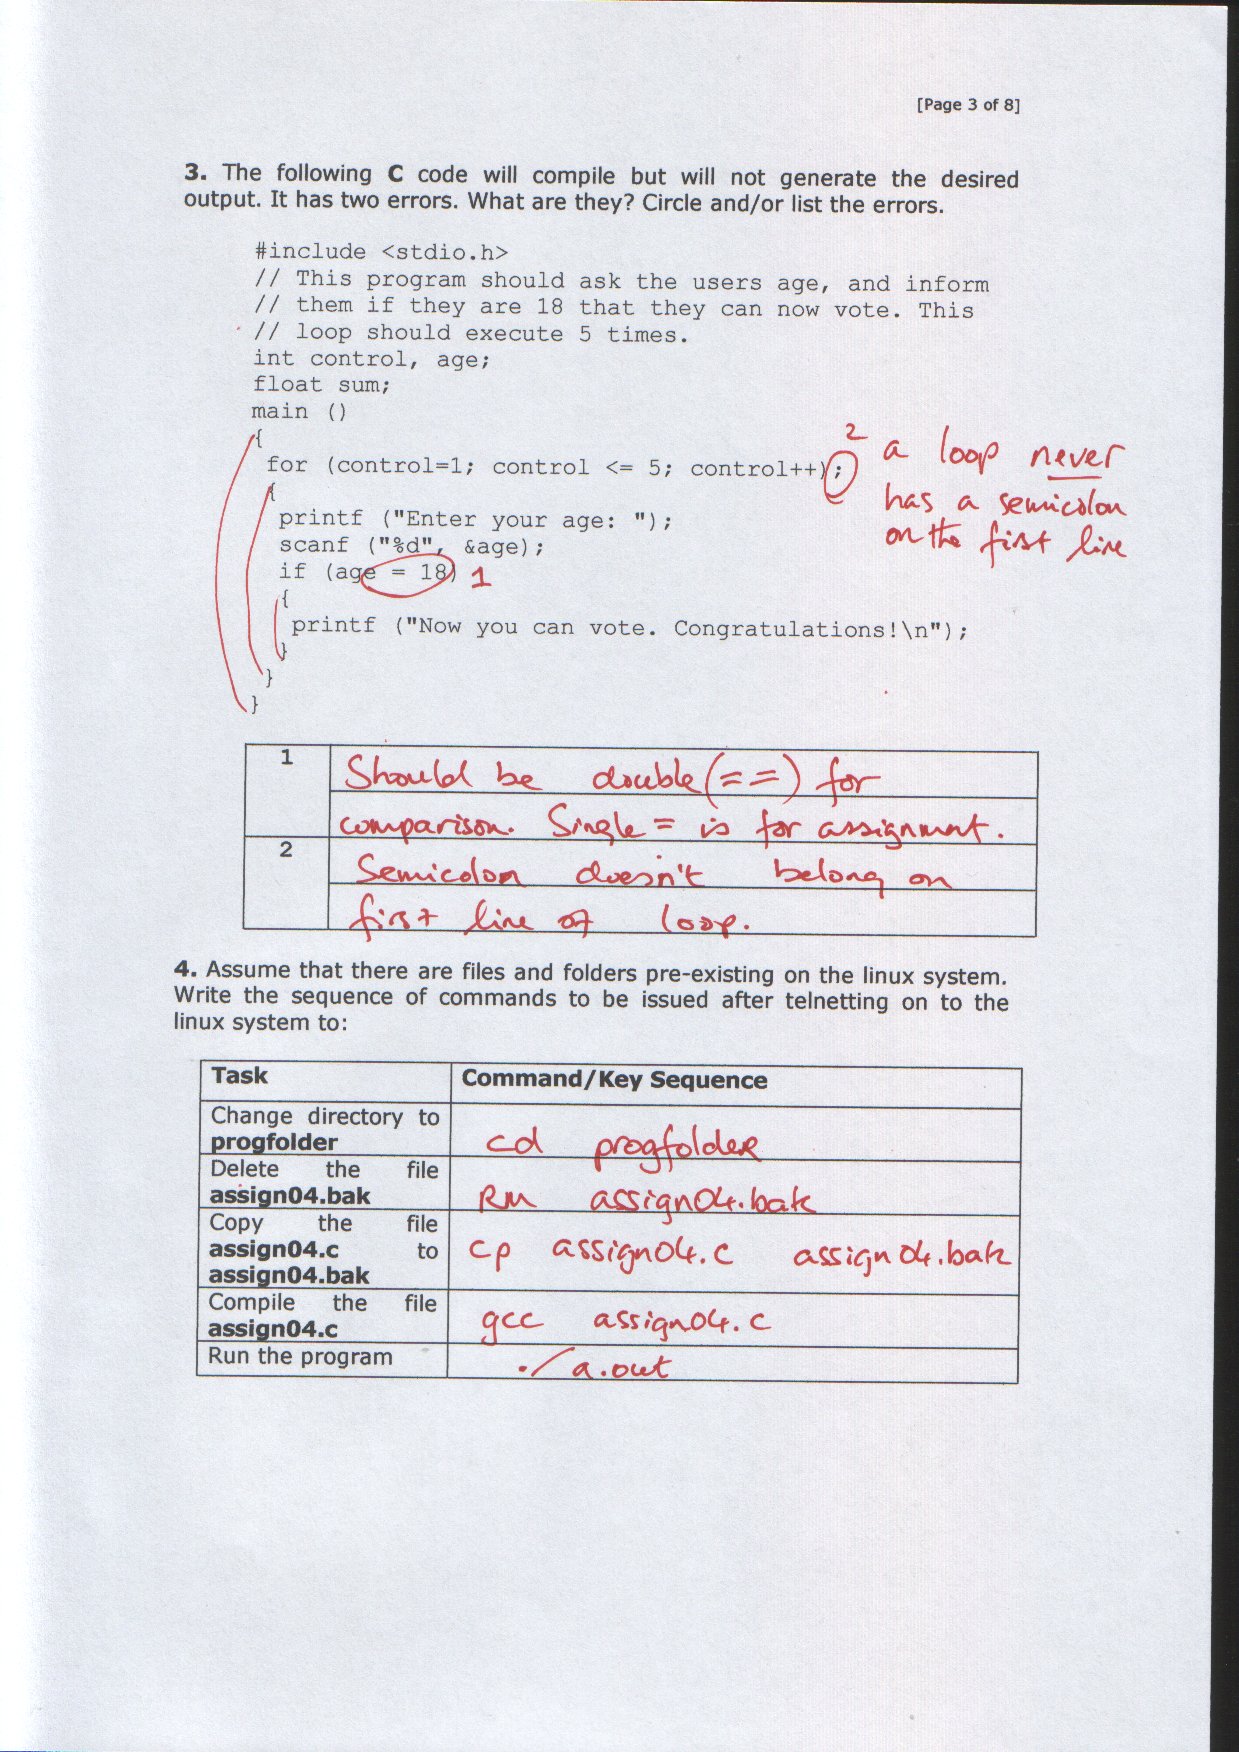 [Page 3 of 8]
3. The following C code will compile but will not generate the desired
output. It has two errors. What are they? Circle and/or list the errors.
#include <stdio.h>
// This program should ask the users age, and inform
// them if they are 18 that they can now vote. This
// loop should execute 5 times.
int control, age;
float sum;
main ()
{
for (control=1; control <= 5; control++);
2
a loop never
has a semicolon
on the first line
{
printf ("Enter your age: ");
scanf ("%d", &age);
if (age = 18) 1
{
printf ("Now you can vote. Congratulations!\n");
}
}
}
1
Should be double (==) for
comparison. Single = is for assignment.
2
Semicolon doesn't belong on
first line of loop.
4. Assume that there are files and folders pre-existing on the linux system.
Write the sequence of commands to be issued after telnetting on to the
linux system to:
Task
Command/Key Sequence
Change directory to
progfolder
cd progfolder
Delete the file
assign04.bak
Rm assign04.bak
Copy the file
assign04.c to
assign04.bak
cp assign04.c assign04.bak
Compile the file
assign04.c
gcc assign04.c
Run the program
./a.out